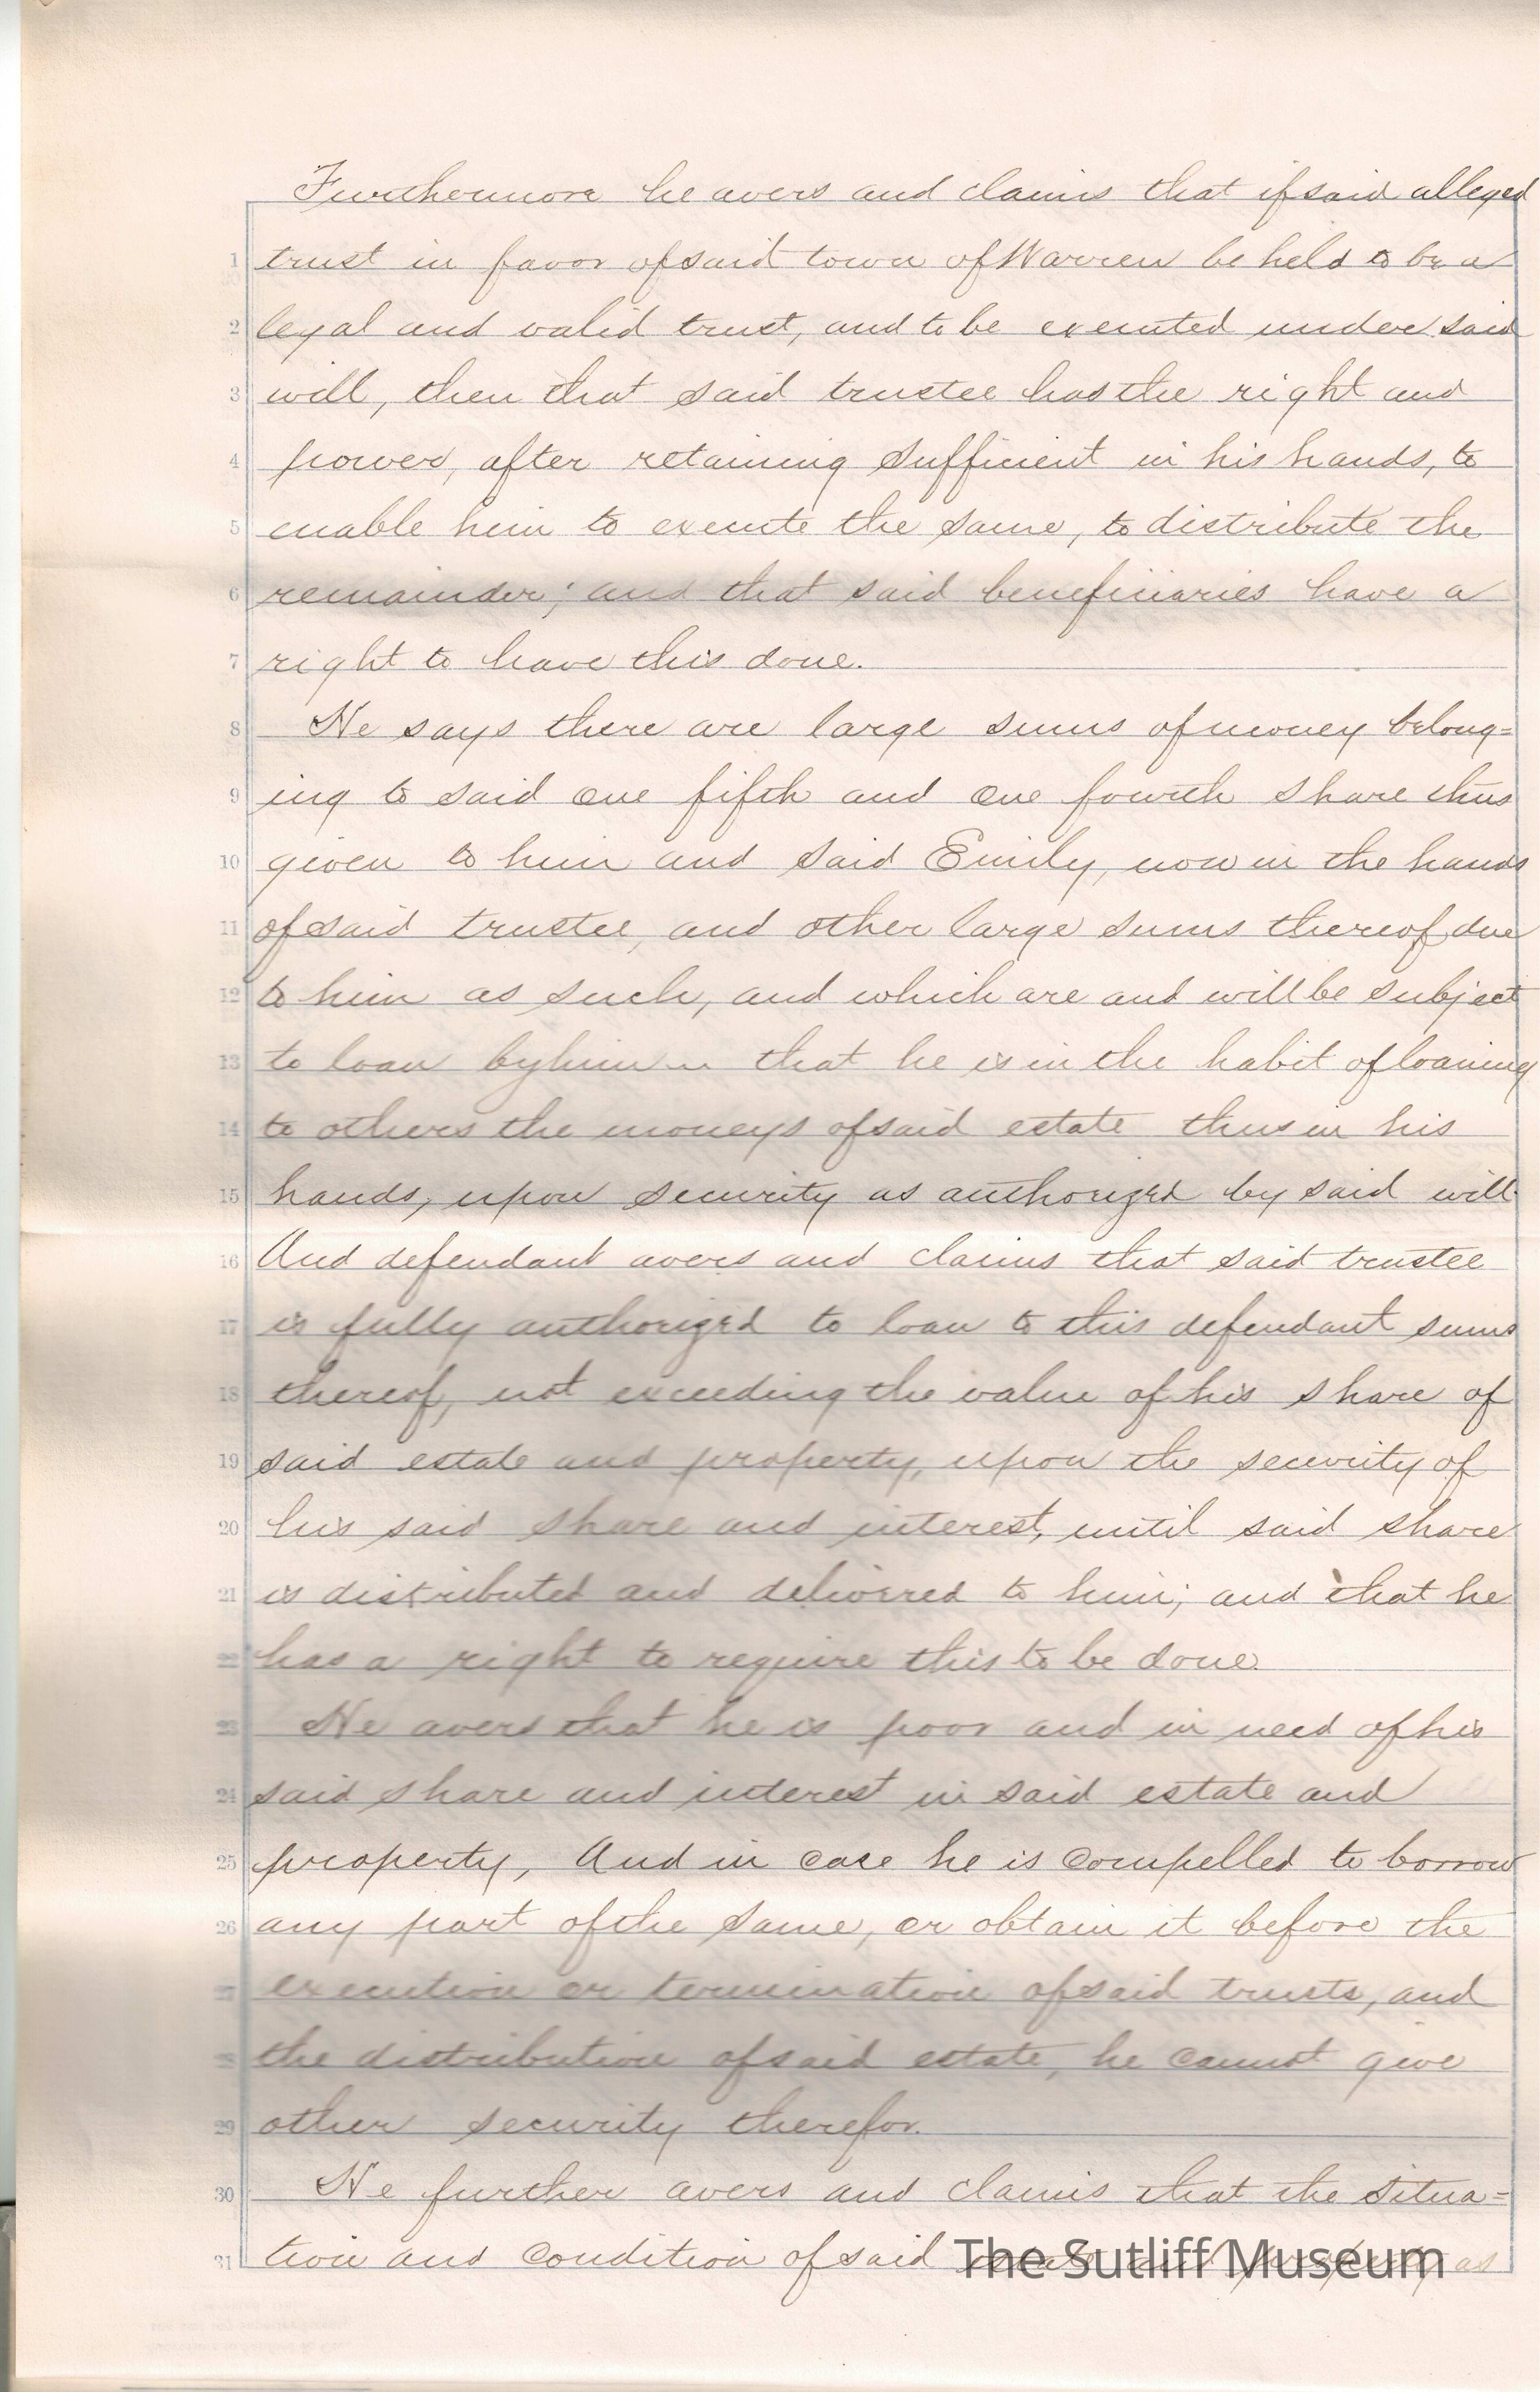 Furthermore he avers and claims that if said alleged
1 trust in favor of said town of Warren be held to be a
2 legal and valid trust, and to be executed under said
3 will, then that said trustee has the right and
4 power, after retaining sufficient in his hands, to
5 enable him to execute the same, to distribute the
6 remainder; and that said beneficiaries have a
7 right to have this done.
8 He says there are large sums of money belong=
9 ing to said one fifth and one fourth share thus
10 given to him and said Emily, now in the hands
11 of said trustee, and other large sums thereof due
12 to him as such, and which are and will be subject
13 to loan by him that he is in the habit of loaning
14 to others the moneys of said estate thus in his
15 hands, upon security as authorized by said will.
16 And defendant avers and claims that said trustee
17 is fully authorized to loan to this defendant sums
18 thereof, not exceeding the value of his share of
19 said estate and property, upon the security of
20 his said share and interest, until said share
21 is distributed and delivered to him; and that he
22 has a right to require this to be done.
23 He avers that he is poor and in need of his
24 said share and interest in said estate and
25 property, And in case he is compelled to borrow
26 any part of the same, or obtain it before the
execution or termination of said trusts, and
the distribution of said estate, he cannot give
29 other security therefor.
30 He further avers and claims that the situa=
31 tion and condition of said and as
The Sutliff Museum